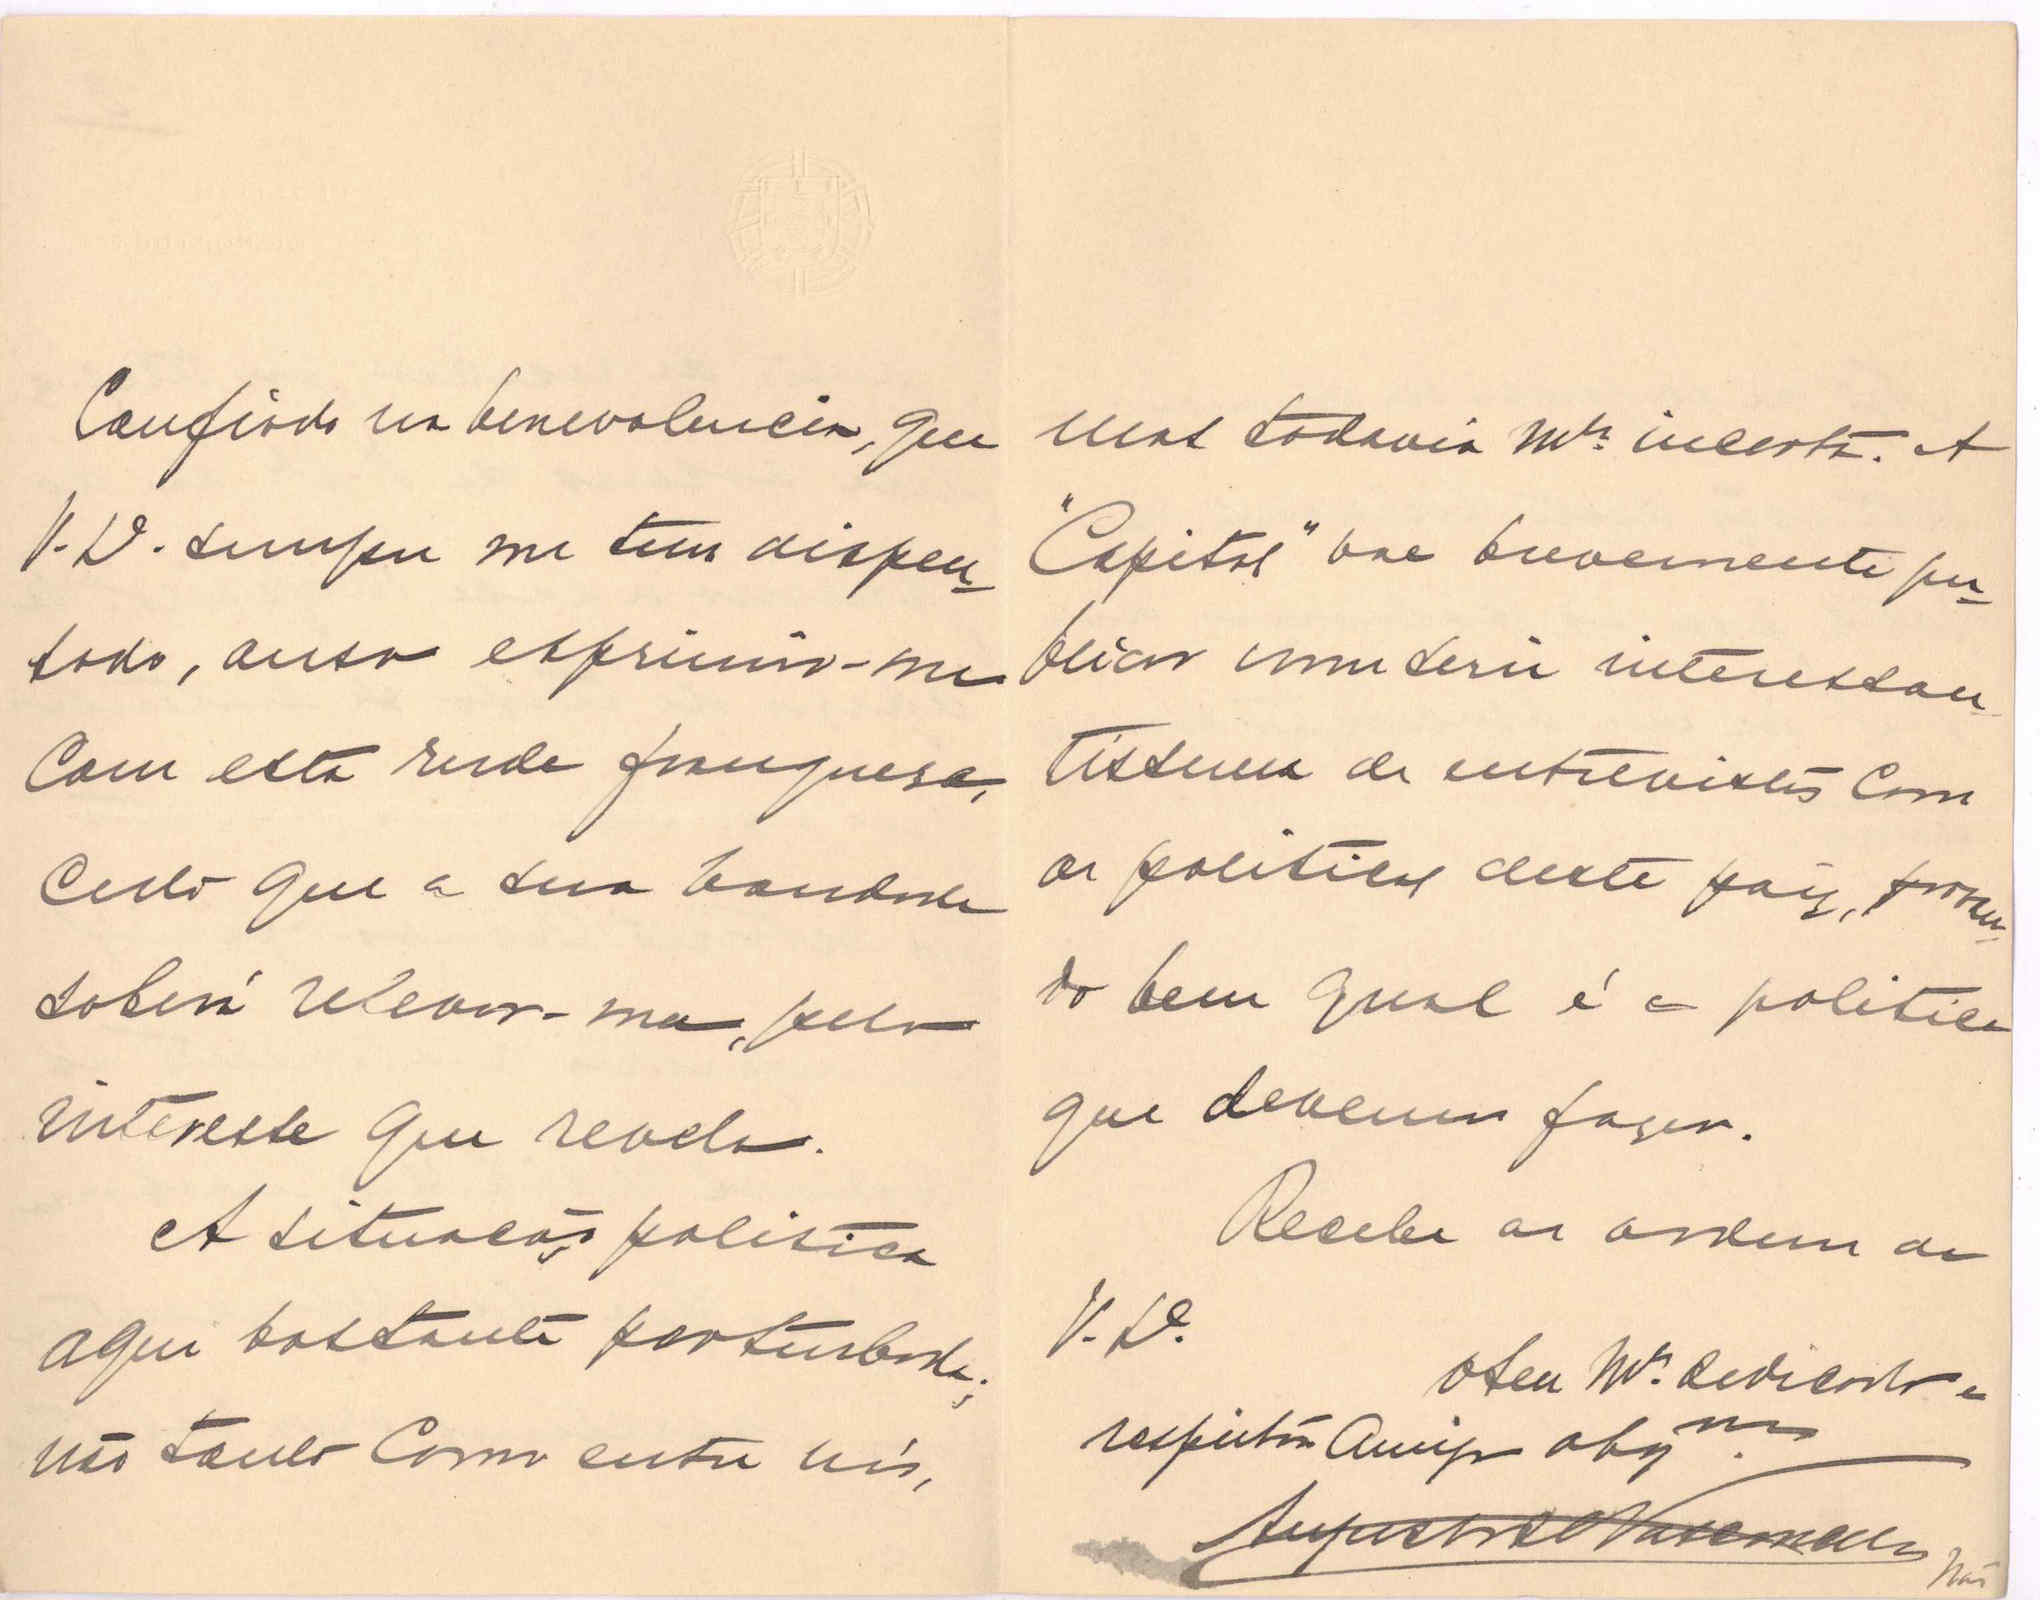 Confiado na benevolencia, que
V. Ex. sempre me tem dispen-
sado, ouso exprimir-me
com esta rude franqueza,
certo que a sua bondade
saberá relevar-ma, pelo
interesse que revela.
A situação politica
aqui bastante perturbada;
não tanto como entre nós,
mas todavia mto incerta. A
"Capital" vae brevemente pu-
blicar uma serie interessan-
tissima de entrevistas com
os politicos deste paiz,
do bem qual é a politica
que devemos fazer.
Receba as ordens de
V. Ex.
o seu mto dedicado e
amigo obgmo
Augusto de Vasconcellos